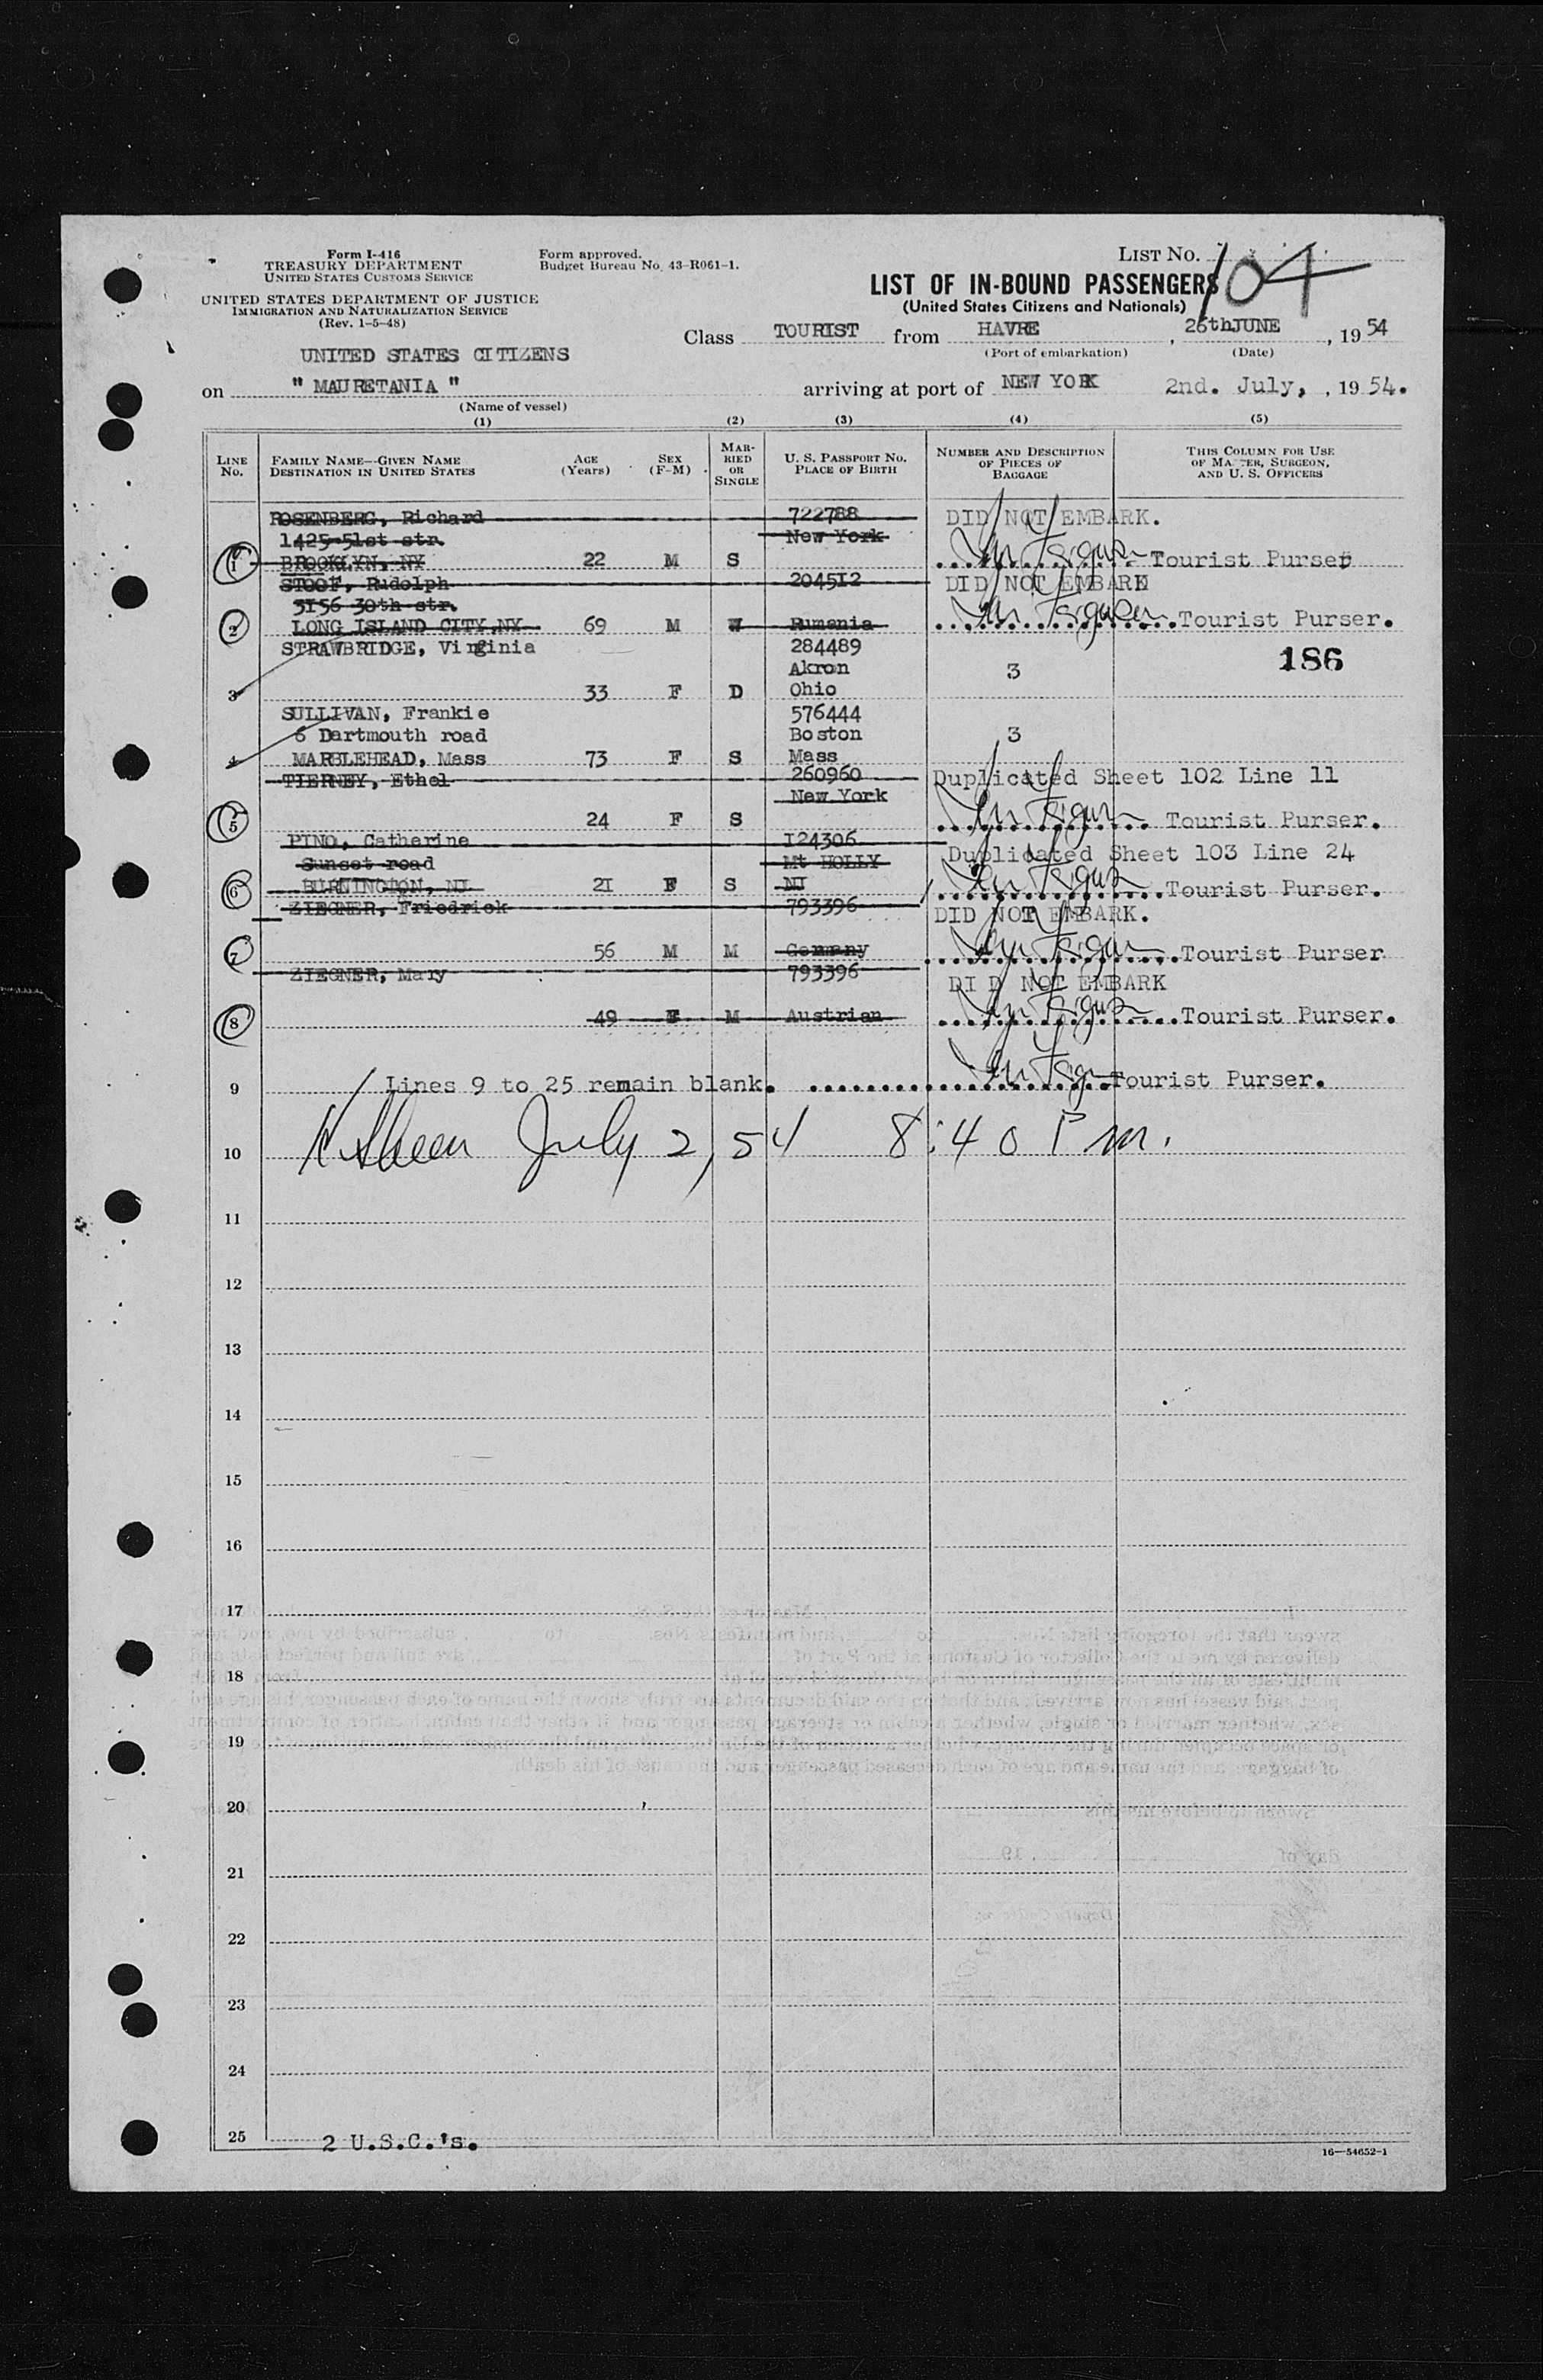 Form I-416
TREASURY DEPARTMENT
UNITED STATES CUSTOMS SERVICE
UNITED STATES DEPARTMENT OF JUSTICE
IMMIGRATION AND NATURALIZATION SERVICE
(Rev. 1-5-48)
Form approved.
Budget Bureau No. 43-R061-1.
LIST No. 104
LIST OF IN-BOUND PASSENGERS
(United States Citizens and Nationals)
Class TOURIST from HAVRE, 26thJUNE, 1954
(Port of embarkation) (Date)
UNITED STATES CITIZENS
on "MAURETANIA" arriving at port of NEW YORK 2nd. July, , 1954.
(Name of vessel)
(1) (2) (3) (4) (5)
LINE No. FAMILY NAME—GIVEN NAME DESTINATION IN UNITED STATES AGE (Years) SEX (F-M) MARRIED OR SINGLE U. S. PASSPORT No. PLACE OF BIRTH NUMBER AND DESCRIPTION OF PIECES OF BAGGAGE THIS COLUMN FOR USE OF MASTER, SURGEON, AND U. S. OFFICERS
ROSENBERG, Richard 722788 DID NOT EMBARK.
1425-51st str. New York
1 BROOKLYN, NY 22 M S Tourist Purser
STOOF, Rudolph 204512 DID NOT EMBARK
3I56 30th str.
2 LONG ISLAND CITY,NY 69 M W Rumania Tourist Purser.
STRAWBRIDGE, Virginia 284489
Akron 3 186
3 33 F D Ohio
SULLIVAN, Frankie 576444
6 Dartmouth road Boston 3
4 MARBLEHEAD, Mass 73 F S Mass
TIERNEY, Ethel 260960 Duplicated Sheet 102 Line 11
New York
5 24 F S Tourist Purser.
PINO, Catherine I24306 Duplicated Sheet 103 Line 24
Sunset road Mt HOLLY
6 BURNINGTON, NJ 2I F S NJ Tourist Purser.
ZIEGNER, Friedrick 793396 DID NOT EMBARK.
7 56 M M Germany Tourist Purser
ZIEGNER, Mary 793396 DID NOT EMBARK
8 49 F M Austrian Tourist Purser.
9 Lines 9 to 25 remain blank. Tourist Purser.
10 July 2, 54 8:40 Pm.
11
12
13
14
15
16
17
18
19
20
21
22
23
24
25 2 U.S.C.'s.
16—54652-1